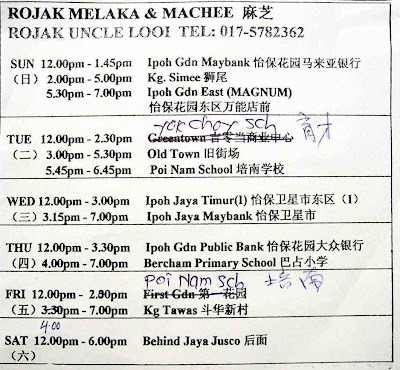 ROJAK MELAKA & MACHEE 麻芝
ROJAK UNCLE LOOI TEL: 017-5782362
SUN 12.00pm - 1.45pm Ipoh Gdn Maybank 怡保花园马来亚银行
(日) 2.00pm - 5.00pm Kg. Simee 獅尾
5.30pm - 7.00pm Ipoh Gdn East (MAGNUM)
怡保花园东区万能店前
Yok Choy Sch 育才
TUE 12.00pm - 2.30pm Greentown 吉零当商业中心
(二) 3.00pm - 5.30pm Old Town 旧街场
5.45pm - 6.45pm Poi Nam School 培南学校
WED 12.00pm - 3.00pm Ipoh Jaya Timur(I) 怡保卫星市东区 (I)
(三) 3.15pm - 7.00pm Ipoh Jaya Maybank 怡保卫星市
THU 12.00pm - 3.30pm Ipoh Gdn Public Bank 怡保花园大众银行
(四) 4.00pm - 7.00pm Bercham Primary School 巴占小学
Poi Nam Sch 培南
FRI 12.00pm - 2.30pm First Gdn 第一花园
(五) 3.30pm - 7.00pm Kg Tawas 斗华新村
4.00
SAT 12.00pm - 6.00pm Behind Jaya Jusco 后面
(六)